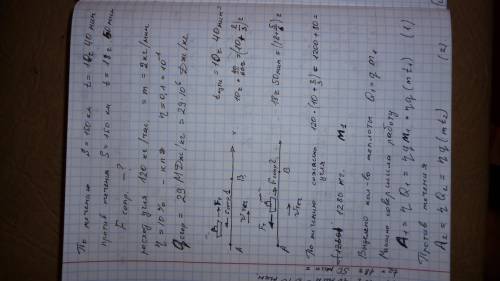 По течению S = 150 км t = 10ч 40 мин
против течения S = 150 км t = 18ч 50 мин
F сопр. - ?
расход угля 120 кг/час. = m = 2 кг/мин
η = 10% - к.п.д η = 0,1 = 10⁻¹
q = 29 МДж/кг = 29·10⁶ Дж/кг
t = 10ч 40 мин =
A B
18ч 50 мин = (18 + 5/6) ч
A B
По течению сожгли 120·(10 + 2/3) = 1200 + 80 =
угля
1280 кг. m₁
Выделено кол-во теплоты Q₁ = q m₁
Машина совершила работу
A₁ = η Q₁ = η q m₁ = η q (m t₁) (1)
Против течения
A₂ = η Q₂ = η q (m t₂) (2)